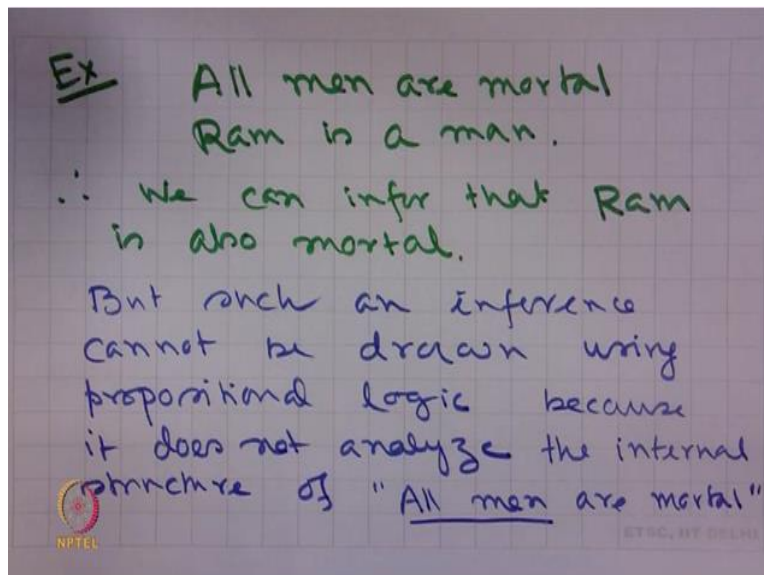 Ex All men are mortal
Ram is a man.
∴ We can infer that Ram
is also mortal.
But such an inference
cannot be drawn using
propositional logic because
it does not analyze the internal
structure of "All men are mortal"
NPTEL
ETSC, IIT DELHI